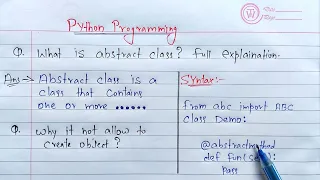 Python Programming
W
Q. What is abstract class? Full explaination.
Ans → Abstract class is a
class that contains
one or more ......
Q. Why it not allow to
create object?
Syntax:-
from abc import ABC
class Demo:
@abstractmethod
def fun1(self):
pass